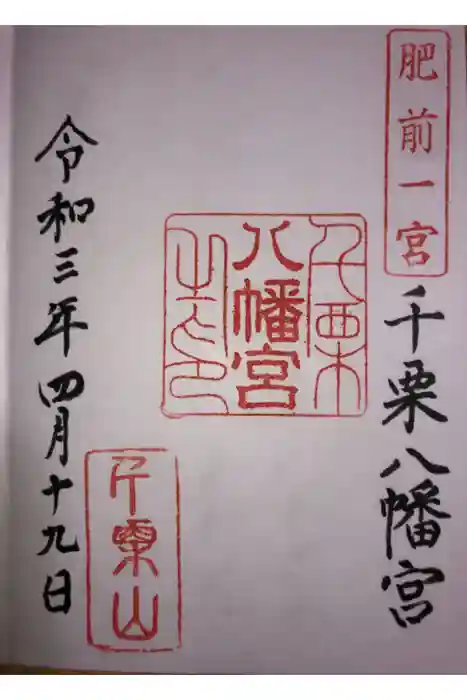 肥前一宮
千栗八幡宮
千栗
八幡宮
之印
千栗山
令和三年四月十九日